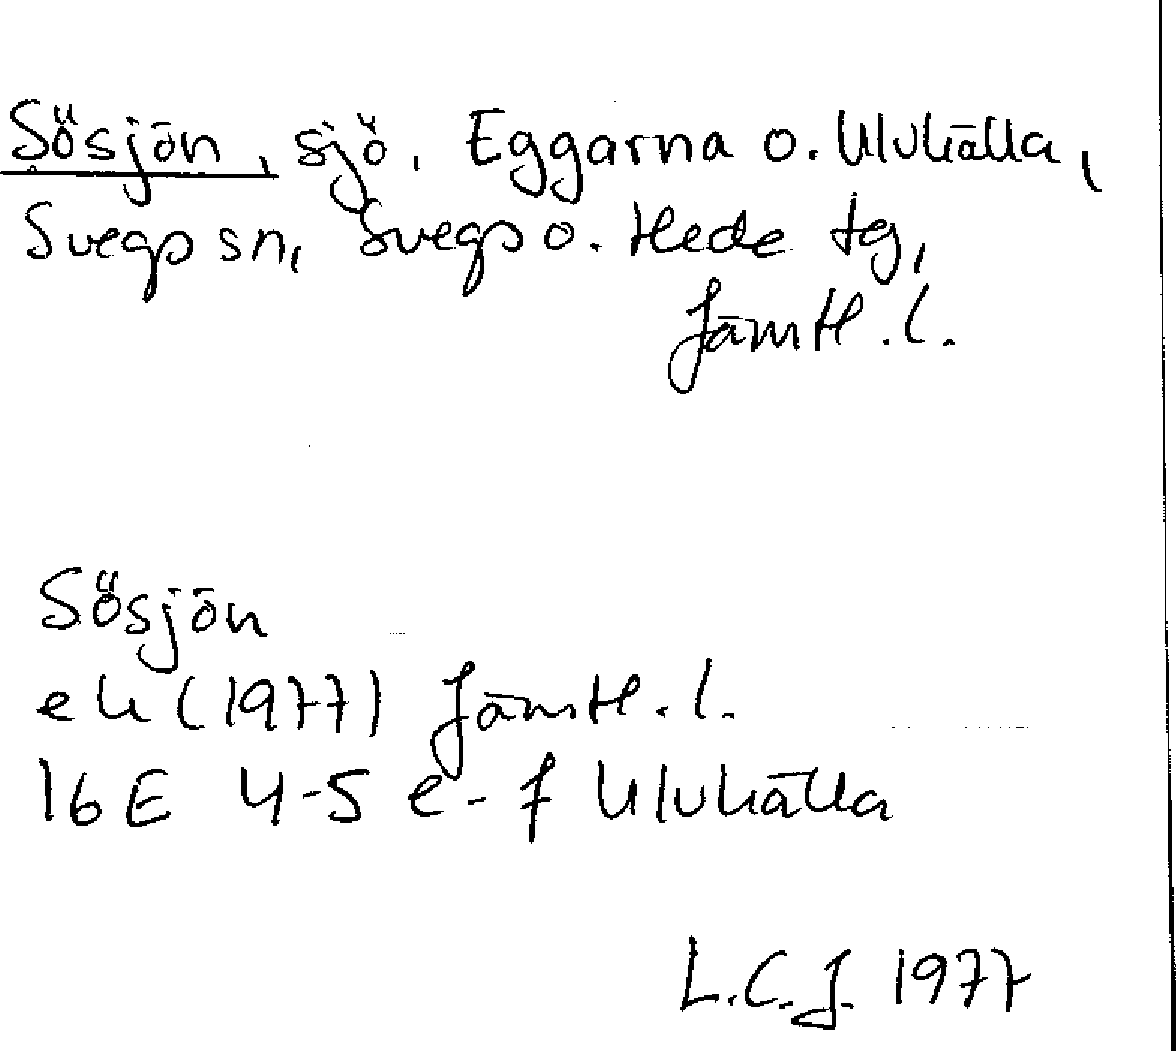 Sösjön, sjö, Eggarna o. Ulvkälla,
Svegs sn, Svegs o. Hede tg,
Jämtl. l.
Sösjön
ek (1977) Jämtl. l.
16E 4-5 e-f Ulvkälla
L.C.J. 1977